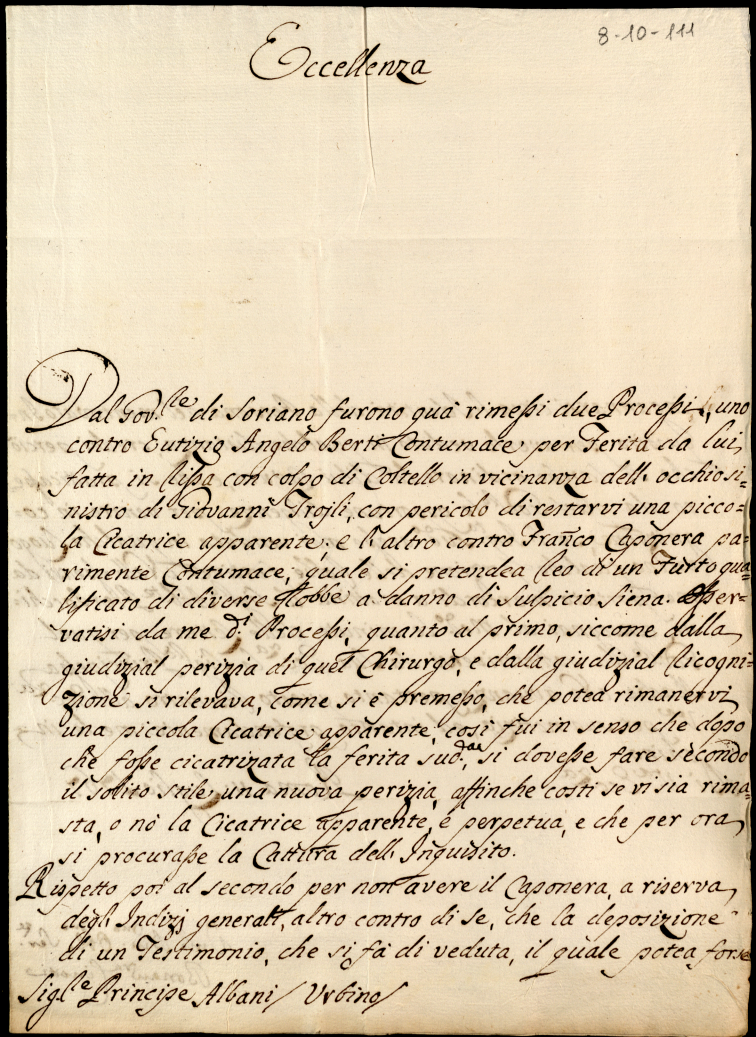 8-10-111
Eccellenza
Dal Gov.le di Soriano furono quà rimessi due Processi, uno
contro Eutizio Angelo Berti Contumace per Ferita da lui
fatta in rissa con colpo di Coltello in vicinanza dell'occhio si=
nistro di Giovanni Trojli, con pericolo di restarvi una picco=
la Cicatrice apparente; e l'altro contro Franco Caponera pa=
rimente Contumace, quale si pretendea Reo di un Furto qua
lificato di diverse Robbe a danno di Sulpicio Siena. Osser=
vatisi da me d.i Processi, quanto al primo, siccome dalla
giudizial perizia di quel Chirurgo, e dalla giudizial Ricogni=
zione si rilevava, come si è premesso, che potea rimanervi
una piccola Cicatrice apparente, così fui in senso che dopo
che fosse cicatrizata la ferita sud.a, si dovesse fare secondo
il solito stile una nuova perizia, affinche costi se vi sia rima=
sta, o nò la Cicatrice apparente, e perpetua, e che per ora
si procurasse la Cattura dell'Inquisito.
Rispetto poi al secondo per non avere il Caponera, a riserva
degl'Indizj generali, altro contro di se, che la deposizione
di un Testimonio, che si fà di veduta, il quale potea forse
Sig.le Principe Albani / Urbino /